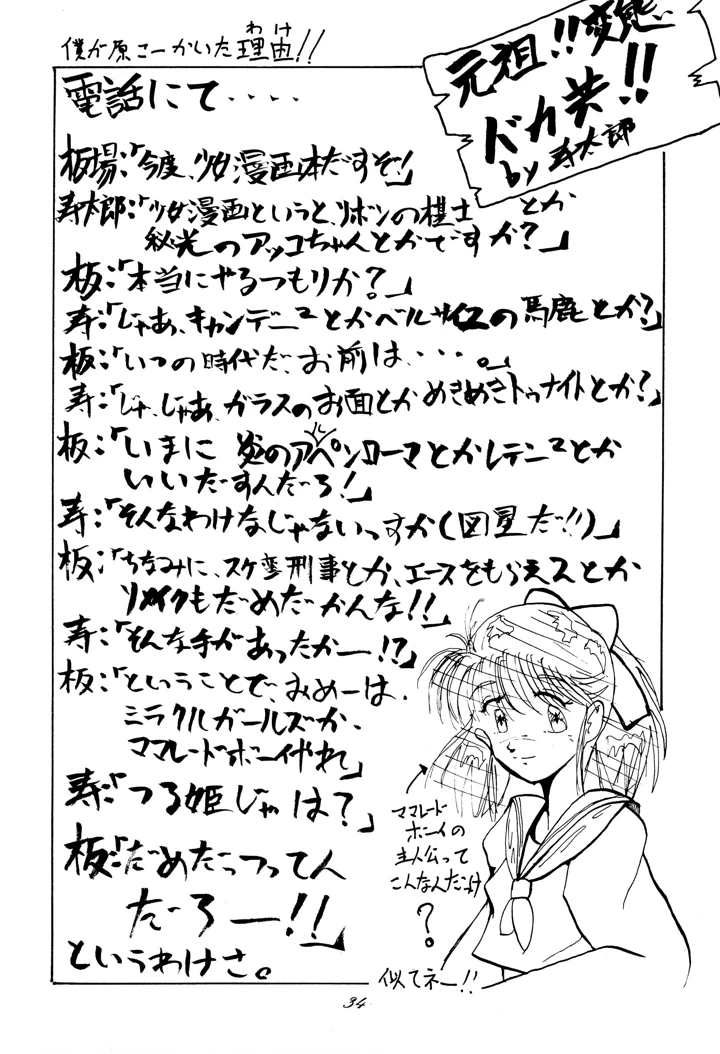 僕が原こーかいた理由!!
わけ
元祖!!変態
ドカ共!!
by 寿太郎
電話にて・・・・
板場:「今度、少女漫画本だすぞ!」
寿太郎:「少女漫画というと、リボンの棋士 とか
秘光のアッコちゃんとかですか?」
板:「本当にやるつもりか?」
寿:「じゃあ、キャンデーマとかベルサイユの馬鹿とか?」
板:「いつの時代だ、お前は・・・。」
寿:「じゃ、じゃあ、ガラスのお面とかめきめきトゥナイトとか?」
板:「いまに 炎のアルペンローマとかレテニスとか
いいだすんだろ!」
寿:「そんなわけなじゃないっすか(図星だ!!)」
板:「ちなみに、スケ変刑事とか、エースをもらえスとか
リメイクもだめだかんな!!」
寿:「そんな手があったかー!?」
板:「ということで、おめーは、
ミラクルガールズか、
ママレードボーイやれ」
寿:「つる姫じゃは?」
板:「だめだっつってん
だろー!!」
というわけさ。
ママレード
ボーイの
主人公って
こんなんだっけ
?
似てネー!!
34